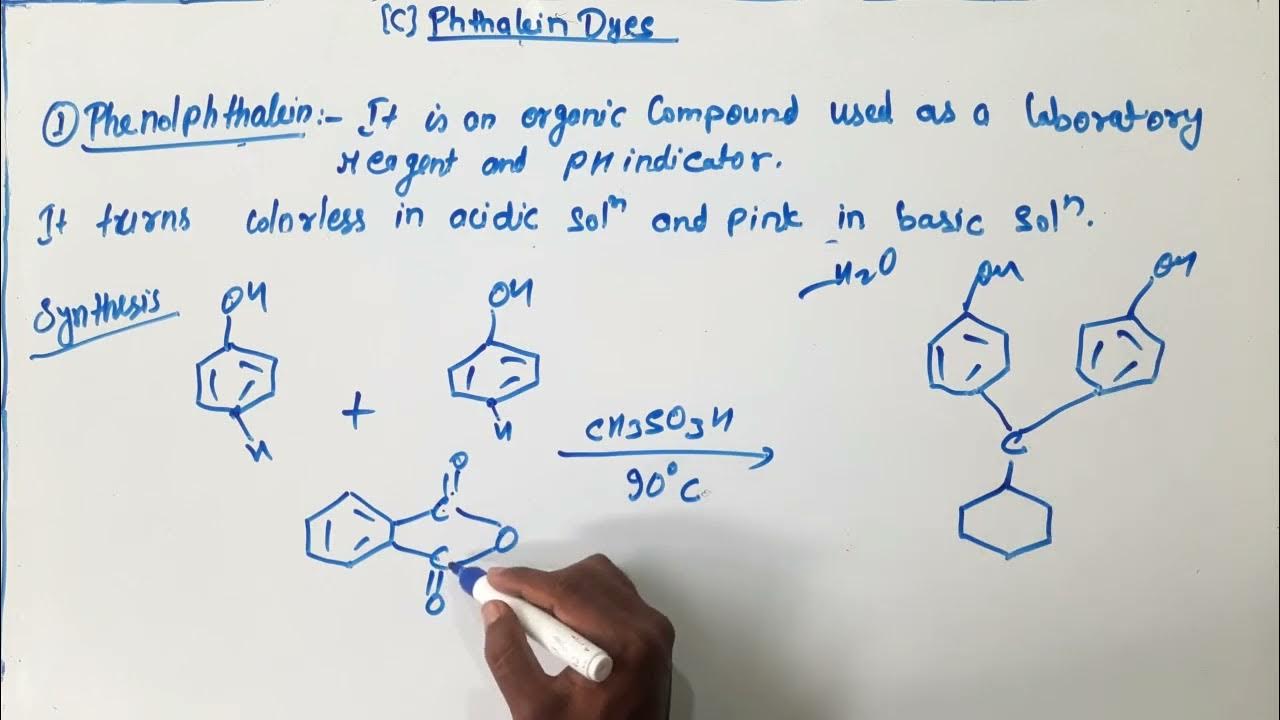 [C] Phthalein Dyes
① Phenolphthalein:- It is an organic Compound used as a laboratory
reagent and PH indicator.
It turns colorless in acidic solⁿ and pink in basic solⁿ.
Synthesis
OH
OH
-H2O
OH
OH
+
H
H
CH3SO3H
90°C
C
O
C
O
C
O